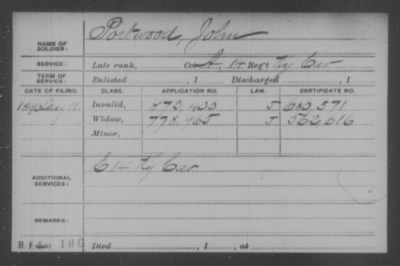 NAME OF SOLDIER: Portwood, John
SERVICE: Late rank, Co. A, 14 Reg't Ky Cav
TERM OF SERVICE: Enlisted , 1 Discharged , 1
DATE OF FILING. CLASS. APPLICATION NO. LAW. CERTIFICATE NO.
Aug 11 Invalid, 572.400 J 680.571
Widow, 775.965 J 562.616
Minor,
ADDITIONAL SERVICES: C 14 Ky Cav
REMARKS:
Died , 1 , at